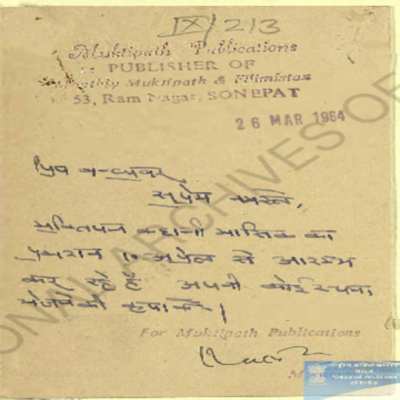 IX/213
Muktipath Publications
PUBLISHER OF
Monthly Muktipath & Filmistan
53, Ram Nagar, SONEPAT
26 MAR 1964
प्रिय
सप्रेम नमस्ते,
मुक्तिपथ कहानी मासिक का
प्रकाशन १० अप्रैल से आरम्भ
कर रहे हैं अपनी कोई रचना
भेजने की कृपा करें।
For Muktipath Publications